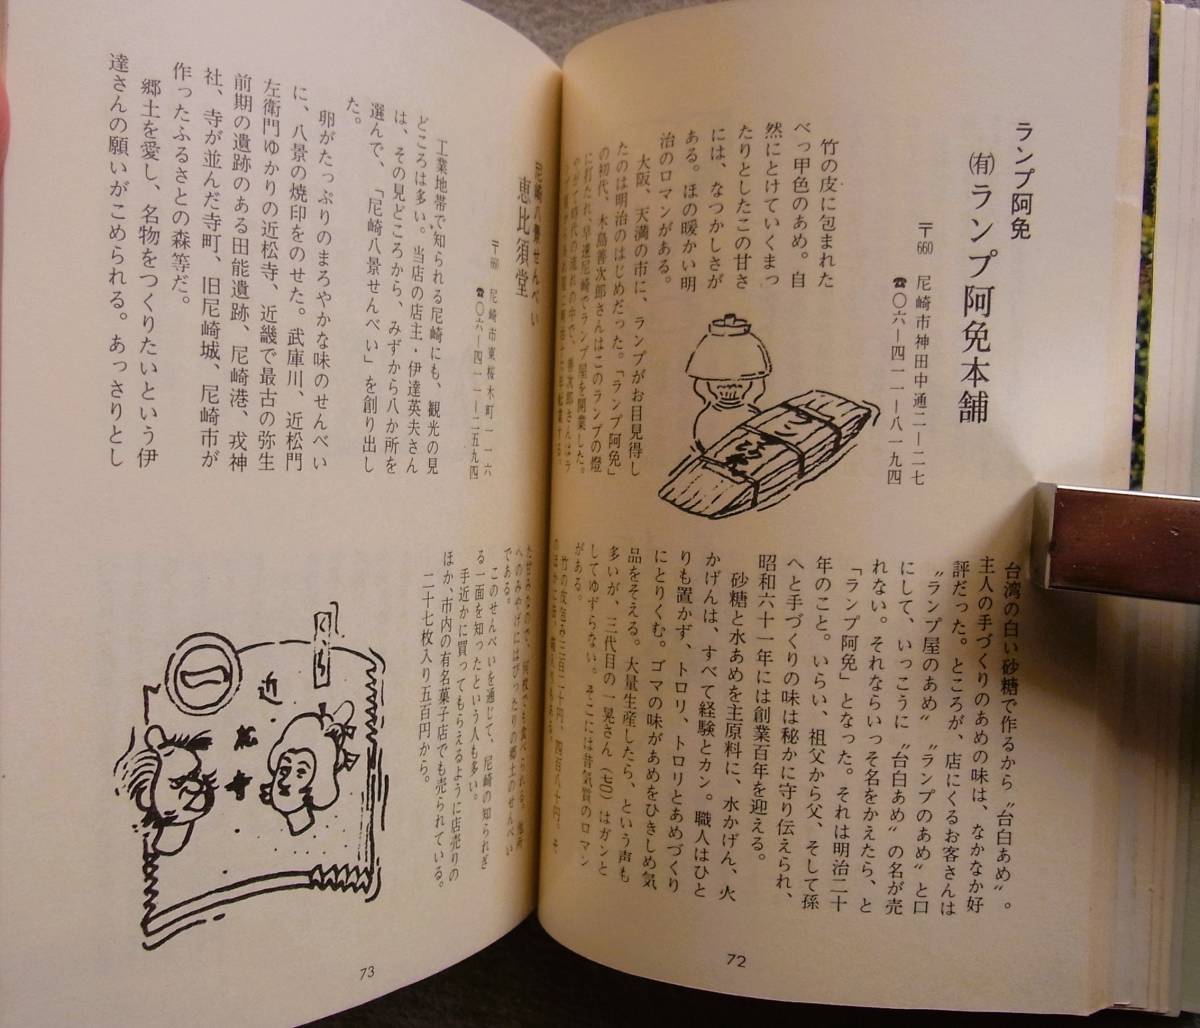 ランプ阿免
㈲ランプ阿免本舗
〒660 尼崎市神田中通二ー二七
☎〇六ー四一一ー八一九四
竹の皮に包まれた
べっ甲色のあめ。自
然にとけていくまっ
たりとしたこの甘さ
には、なつかしさが
ある。ほの暖かい明
治のロマンがある。
大阪、天満の市に、ランプがお目見得し
たのは明治のはじめだった。「ランプ阿免」
の初代、木島善次郎さんはこのランプの燈
に打たれ、早速尼崎でランプ屋を開業した。
台湾の白い砂糖で作るから〝台白あめ〟。
主人の手づくりのあめの味は、なかなか好
評だった。ところが、店にくるお客さんは
〝ランプ屋のあめ〟〝ランプのあめ〟と口
にして、いっこうに〝台白あめ〟の名が売
れない。それならいっそ名をかえたら、と
「ランプ阿免」となった。それは明治二十
年のこと。いらい、祖父から父、そして孫
へと手づくりの味は秘かに守り伝えられ、
昭和六十一年には創業百年を迎える。
砂糖と水あめを主原料に、水かげん、火
かげんは、すべて経験とカン。職人はひと
りも置かず、トロリ、トロリとあめづくり
にとりくむ。ゴマの味があめをひきしめ気
品をそえる。大量生産したら、という声も
多いが、三代目の一晃さん（七〇）はガンと
してゆずらない。そこには昔気質のロマン
がある。
竹の皮包み三百二十円、四百八十円。そ
72
尼崎八景せんべい
恵比須堂
〒660 尼崎市東桜木町一ー六
☎〇六ー四一一ー二五九四
工業地帯で知られる尼崎にも、観光の見
どころは多い。当店の店主・伊達英夫さん
は、その見どころから、みずから八か所を
選んで、「尼崎八景せんべい」を創り出し
た。
卵がたっぷりのまろやかな味のせんべい
に、八景の焼印をのせた。武庫川、近松門
左衛門ゆかりの近松寺、近畿で最古の弥生
前期の遺跡のある田能遺跡、尼崎港、戎神
社、寺が並んだ寺町、旧尼崎城、尼崎市が
作ったふるさとの森等だ。
郷土を愛し、名物をつくりたいという伊
達さんの願いがこめられる。あっさりとし
た甘みなので、何枚でも食べられる。他所
へのみやげにはぴったりの郷土のせんべい
である。
このせんべいを通じて、尼崎の知られざ
る一面を知ったという人も多い。
手近かに買ってもらえるように店売りの
ほか、市内の有名菓子店でも売られている。
二十七枚入り五百円から。
近
松
寺
73